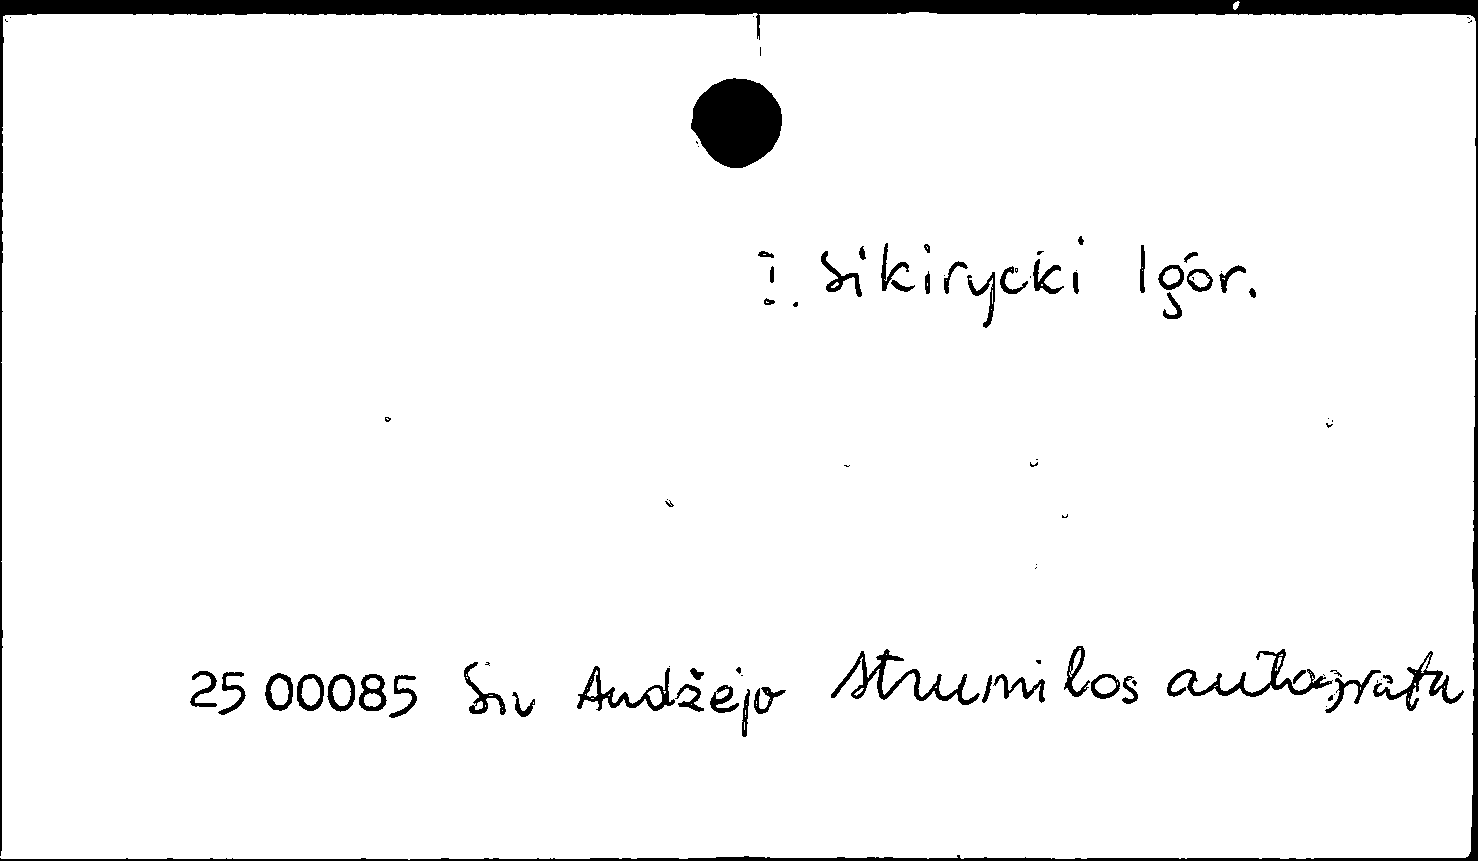 I. Sikirycki Igor.
25 00085 Su Andžejo Strumilos autografu